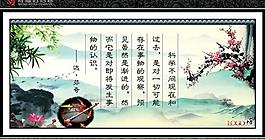 科学不问现在和
过去，是对一切可能
存在事物的观察。预
见虽然是渐进的，然
而它是对即将发生事
物的认识。
——达·芬奇
LOGO